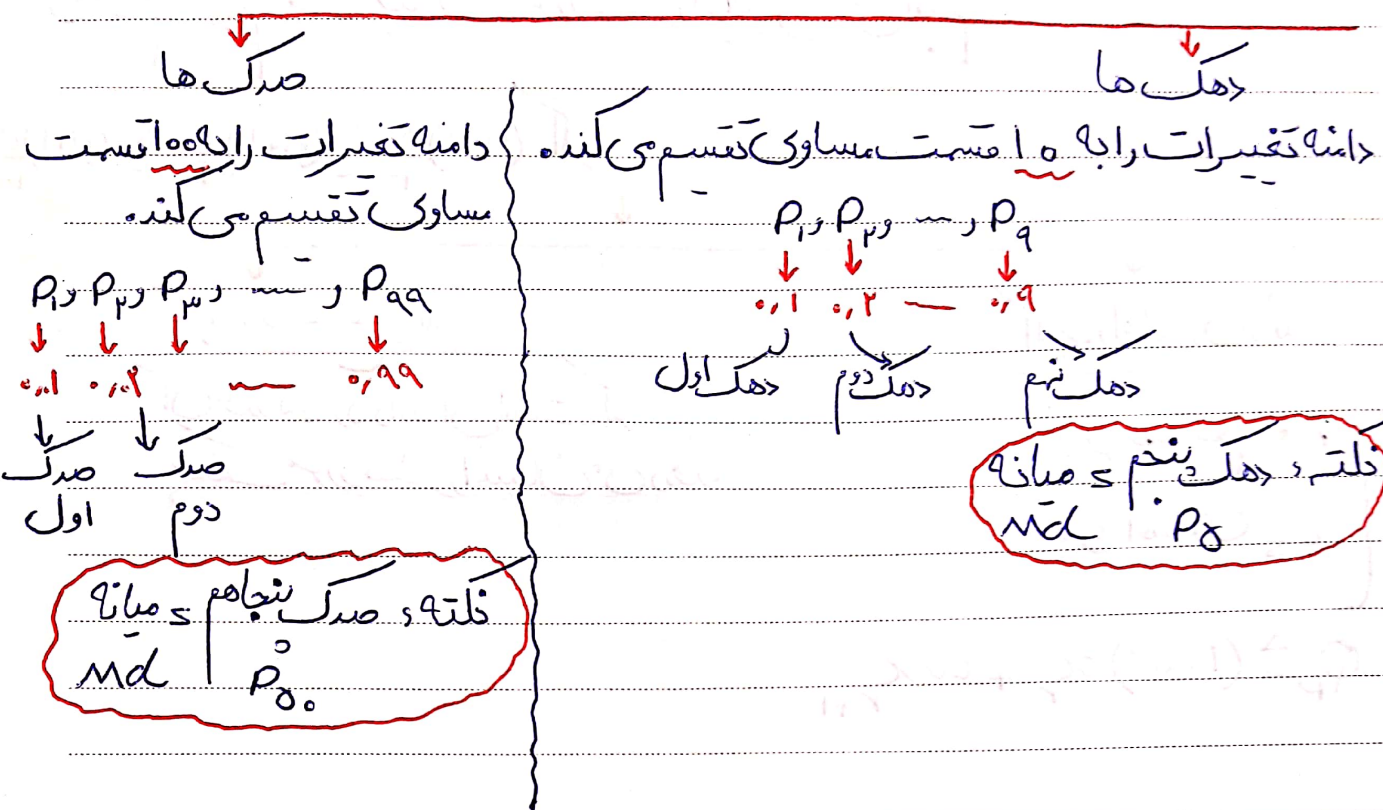 دهک ها
دامنه تغییرات را به ۱۰ قسمت مساوی تقسیم می کند.
P۱ و P۲ و ... و P۹
۰٫۱ ۰٫۲ — ۰٫۹
دهک اول دهک دوم دهک نهم
نکته: دهک پنجم = میانه
P۵ Md
صدک ها
دامنه تغییرات را به ۱۰۰ قسمت
مساوی تقسیم می کند.
P۱ و P۲ و P۳ و ... و P۹۹
۰٫۰۱ ۰٫۰۲ — ۰٫۹۹
صدک صدک
اول دوم
نکته: صدک پنجاهم = میانه
P۵۰ Md